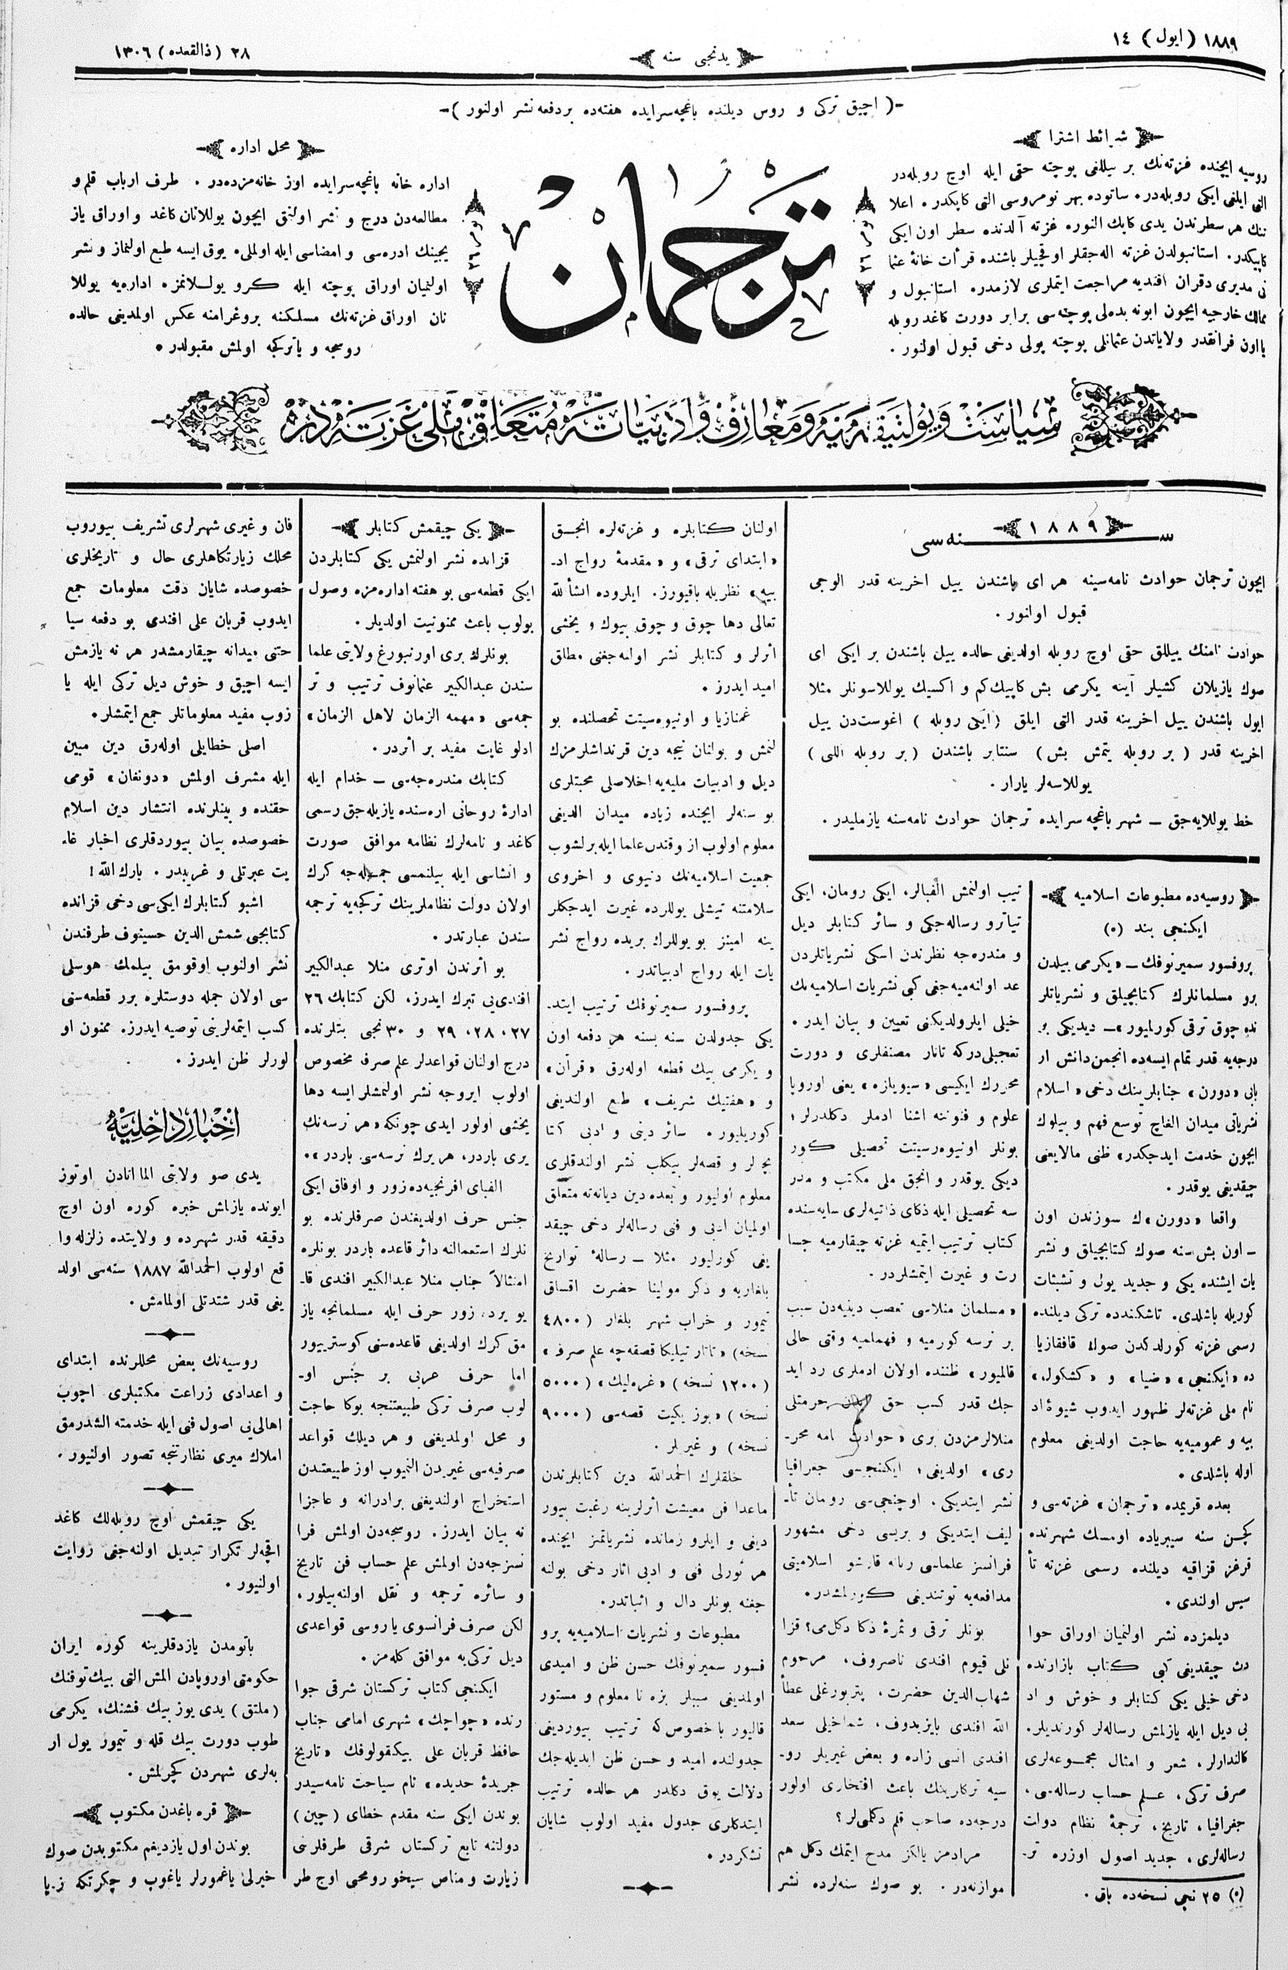 ١٨٨٩ ( ایول ) ١٤
یدنجی سنه
٢٨ ( ذالقعده ) ١٣٠٦
-( اچیق ترکی و روس دیلنده باغچه‌سرایده هفته‌ده بردفعه نشر اولنور )-
شرائط اشترا
روسیه ایچنده غزته‌نك بر ییللغی پوچته حقی ایله اوچ روبله‌در
التی ایلغی ایکی روبله‌دره ساتوده بهر نومروسی التی کاپکدر. اعلا
ننك هر سطرندن یدی کاپك النوره غزته آلدنده سطر اون ایکی
کاپیکدر. استانبولدن غزته اله‌جقلر اوقچیلر باشنده قرأت خانهٔ عثما
نی مدیری دقران افندیه مراجعت ایتملری لازمدر. استانبول و
ممالك خارجیه ایچون ابونه بده‌لی پوچته‌سی برابر دورت کاغد روبله
یااون فرانقدر ولایاتدن عثمانلی پوچته پولی دخی قبول اولنور.
ترجمان
نومرو ٢٦
محل اداره
اداره خانه باغچه‌سرایده اوز خانه‌مزده‌در. طرف ارباب قلم و
مطالعه‌دن درج و نشر اولنق ایچون یوللانان کاغد و اوراق یاز
یجینك ادره‌سی و امضاسی ایله اولملی‌ه یوق ایسه طبع اولنماز و نشر
اولنمیان اوراق پوچته ایله کرو یوللانمز. اداره‌یه یوللا
نان اوراق غزته‌نك مسلکنه پروغرامنه عکس اولمدیغی حالده
روسجه و یاترکجه اولمش مقبولدر.
سیاست و پولتیقه‌یه و معارف و ادبیاته متعلق ملی غزته‌در
١٨٨٩
سنه‌سی
ایچون ترجمان حوادث نامه‌سینه هر ای باشندن ییل اخرینه قدر الوجی
قبول اولنور.
حوادث نامنك ییللق حقی اوچ روبله اولدیغی حالده ییل باشندن بر ایکی ای
صوك یازیلان کشیلر آینه یکرمی بش کاپیك کم و اکسیك یوللاسونلر مثلا
ایول باشندن ییل اخرینه قدر التی ایلق ( ایکی روبله ) اغوست‌دن ییل
اخرینه قدر ( بر روبله یتمش بش ) سنتابر باشندن ( بر روبله اللی )
یوللاسه‌لر یارار.
خط یوللایه‌جق – شهر باغچه سرایده ترجمان حوادث نامه‌سنه یازملیدر.
روسیه‌ده مطبوعات اسلامیه
ایکنجی بند (٥)
پروفسور سمیرنوفك – «یکرمی ییلدن
برو مسلمانلرك کتابچیلق و نشریاتلر
نده چوق ترقی کورلمیور» – دیدیکی بر
درجه‌یه قدر تمام ایسه‌ده انجمن دانش ار
بابی «دورن» جنابلرینك دخی «اسلام
نشریاتی میدان الغاج توسع فهم و بیلوك
ایچون خدمت ایده‌جکدر» ظنی مالایعنی
چیقدیغی یوقدر.
واقعا «دورن» ك سوزندن اون
– اون بش سنه صوك کتابچیلق و نشر
یات ایشنده یکی و جدید یول و تشبثات
کوریله باشلدی. تاشکندده ترکی دیلنده
رسمی غزته کورلدکدن صوك قافقازیا
ده «ایکنجی» «ضیا» و «کشکول»
نام ملی غزته‌لر ظهور ایدوب شیوهٔ اد
بیه و عمومیه‌یه حاجت اولدیغی معلوم
اوله باشلدی.
بعده قریمده «ترجمان» غزته‌سی و
کچن سنه سیبریاده اومسك شهرنده
قرغز قزاقیه دیلنده رسمی غزته تأ
سیس اولندی.
دیلمزده نشر اولنمیان اوراق حوا
دث چیقدیغی کبی کتاب بازارنده
دخی خیلی یکی کتابلر و خوش و اد
بی دیل ایله یازلمش رساله‌لر کورندیلر.
کالندارلر، شعر و امثال مجموعه‌لری
صرف ترکی، علم حساب رساله‌سی،
جغرافیا، تاریخ، ترجمهٔ نظام دولت
رساله‌لری، جدید اصول اوزره تر
(٥) ٢٥ نجی نسخه‌ده باق.
تیب اولنمش الفبالر، ایکی رومان، ایکی
تیاترو رساله‌جکی و سائر کتابلر دیل
و مندره‌جه نظرندن اسکی نشریاتلردن
عد اولنه‌میه‌جغی کبی نشریات اسلامیه‌نك
خیلی ایلرولدیکنی تعیین و بیان ایدر.
تعجبلی‌درکه تاتار مصنفلری و دورت
محررك ایکیسی «سیویازه» یعنی اوروپا
علوم و فنوننه اشنا ادملر دکلدرلر؛
بونلر اونیوه‌رسیتت تحصیلی کور
دیکی یوقدر و انجق ملی مکتب و مدر
سه تحصیلی ایله ذکای ذاتیه‌لری سایه‌سنده
کتاب ترتیب ایتمیه غزته چیقارمیه جسا
رت و غیرت ایتمشلردر.
«مسلمان منلاسی تعصب دینیه‌دن سبب
بر نرسه کورمیه و فهماميه وقتی حالی
قالمیور» ظننده اولان ادملری رد اید
جك قدر کسب حق ایدن حرمتلی
منلالرمزدن بری «حوادث نامه محر
ری» اولدیغی؛ ایکنجیسی جغرافیا
نشر ایتدیکی، اوچنجی‌سی رومان تأ
لیف ایتدیکی و بریسی دخی مشهور
فرانسز علماسی رنانه قارشو اسلامیتی
مدافعه‌یه توتندیغی کورلمشدر.
بونلر ترقی و ثمرهٔ ذکا دکل‌می؟ قزا
نلی قیوم افندی ناصروف، مرحوم
شهاب‌الدین حضرت، پتربورغلی عطأ
الله افندی بایزیدوف، شماخیلی سعد
افندی انسی زاده و بعض غیریلر رو
سیه ترکلرینك باعث افتخاری اولور
درجه‌ده صاحب قلم دکلمی‌لر؟
مرادمز یالکز مدح ایتمك دکل هم
موازنه‌در. بو صوك سنه‌لرده نشر
اولنان کتابلره و غزته‌لره انجق
«ابتدای ترقی» و «مقدمهٔ رواج اد
بیه» نظریله باقیورز. ایلروده انشألله
تعالی دها چوق و چوق بیوك و یخشی
اثرلر و کتابلر نشر اوله‌جغنی مطلق
امید ایدرز.
غمنازیا و اونیوه‌سیتت تحصلنده بو
لنمش و بولنان نیجه دین قرنداشلرمزك
دیل و ادبیات ملیه‌یه اخلاصلی محبتلری
بو سنه‌لر ایچنده زیاده میدان الدیغی
معلوم اولوب از وقتدن علما ایله برلشوب
جمعیت اسلامیه‌نك دنیوی و اخروی
سلامتنه تیشلی یوللرده غیرت ایده‌جکلر
ینه امینز بو یوللرك بریده رواج نشر
یات ایله رواج ادبیاتدر.
پروفسور سمیرنوفك ترتیب ایتد
یکی جدولدن سنه بسنه هر دفعه اون
و یکرمی بیك قطعه اوله‌رق «قرأن»
و «هفتیك شریف» طبع اولندیغی
کوریلیور. سائر دینی و ادبی کتا
بجلر و قصه‌لر بیکلب نشر اولندقلری
معلوم اولیور و بعده دین دیانته متعلق
اولمیان ادبی و فنی رساله‌لر دخی چیقد
یغی کورلیور مثلا – رسالهٔ تواریخ
بلغاریه و ذکر مولینا حضرت اقساق
تیمور و خراب شهر بلغار (٤٨٠٠
نسخه) «تاتار تیلیکا قصقه‌چه علم صرف»
(١٢٠٠ نسخه) «غره‌لیك» (٥٠٠٠
نسخه) «بوز یکیت قصه‌سی (٩٠٠٠
نسخه) و غیرلر.
خلقلرك الحمدالله دین کتابلرندن
ماعدا فن معیشت اثرلرینه رغبت بیور
دیغی و ایلرو زمانده نشریاتمز ایچنده
هر تورلی فنی و ادبی اثار دخی بولنه
جغنه بونلر دال و اثباتدر.
مطبوعات و نشریات اسلامیه‌یه پرو
فسور سمیرنوفك حسن ظن و امیدی
اولمدیغی سببلر بزه نا معلوم و مستور
قالیور با خصوص که ترتیب بیوردیغی
جدولنده امید و حسن ظن ایدیله‌جك
دلالت یوق دکلدر هر حالده ترتیب
ایتدکلری جدول مفید اولوب شایان
تشکردر.
یکی چیقمش کتابلر
قزانده نشر اولنمش یکی کتابلردن
ایکی قطعه‌سی بو هفته اداره‌مزه وصول
بولوب باعث ممنونیت اولدیلر.
بونلرك بری اورنبورغ ولایتی علما
سندن عبدالکبیر عثمانوف ترتیب و تر
جمه‌سی «مهمه الزمان لاهل الزمان»
ادلو غایت مفید بر اثردر.
کتابك مندره‌جه‌سی – خدام ایله
ادارهٔ روحانی اره‌سنده یازیله‌جق رسمی
کاغد و نامه‌لرك نظامه موافق صورت
و انشاسی ایله بیلنمسی جمله‌جه کرك
اولان دولت نظاملرینك ترکجه‌یه ترجمه
سندن عبارتدر.
بو اثرندن اوتری منلا عبدالکبیر
افندی‌یی تبرك ایدرز، لکن کتابك ٢٦
٢٧، ٢٨، ٢٩ و ٣٠ نجی بتلرنده
درج اولنان قواعدلر علم صرفه مخصوص
اولوب ایروجه نشر اولنمشلر ایسه دها
یخشی اولور ایدی چونکه «هر نرسه‌نك
یری باردر، هر یرك نرسه‌سی باردر».
الفبای افرنجیه‌ده زور و اوفاق ایکی
جنس حرف اولدیغندن صرفلرنده بو
نلرك استعمالنه دائر قاعده باردر بونلره
امتثالاً جناب منلا عبدالکبیر افندی قا
یو یرده زور حرف ایله مسلمانجه یاز
مق کرك اولدیغی قاعده‌سنی کوستریبیور
اما حرف عربی بر جنس او
لوب صرف ترکی طبیعتنجه بوکا حاجت
و محل اولمدیغنی و هر دیلك قواعد
صرفیه‌سی غیریدن النمیوب اوز طبیعتندن
استخراج اولندیغنی برادرانه و عاجزا
نه بیان ایدرز. روسجه‌دن اولمش فرا
نسزجه‌دن اولمش علم حساب فن تاریخ
و سائره ترجمه و نقل اولنه‌بیلور.
لکن صرف فرانسوی یا روسی قواعدی
دیل ترکی‌یه موافق کله‌مز.
ایکنجی کتاب ترکستان شرقی جوا
رنده «چواچك» شهری امامی جناب
حافظ قربان علی بیکقولوفك «تاریخ
جریدهٔ حدیده» نام سیاحت نامه‌سیدر
بوندن ایکی سنه مقدم خطای (چین)
دولتنه تابع ترکستان شرقی طرفلرنی
زیارت و مناص سیخو رومچی اوج طر
فان و غیری شهرلری تشریف بیوروب
محلك زیارتکاهلری حال و تاریخلری
خصوصده شایان دقت معلومات جمع
ایدوب قربان علی افندی بو دفعه سیا
حتنی میدانه چیقارمشدر هر نه یازمش
ایسه اچیق و خوش دیل ترکی ایله یا
زوب مفید معلوماتلر جمع ایتمشلر.
اصلی خطایلی اوله‌رق دین مبین
ایله مشرف اولمش «دونغان» قومی
حقنده و بینلرنده انتشار دین اسلام
خصوصده بیان بیوردقلری اخبار غا
یت عبرتلی و غریبدر. بارك الله!
اشبو کتابلرك ایکی‌سی دخی قزانده
کتابجی شمش الدین حسینوف طرفندن
نشر اولنوب اوقومق بیلمك هوسلی
سی اولان جمله دوستلره برر قطعه‌سنی
کسب ایتمه‌لرینی توصیه ایدرز. ممنون او
لورلر ظن ایدرز.
اخبار داخلیه
یدی صو ولایتی الما اتادن اوتوز
ایونده یازلش خبره کوره اون اوچ
دقیقه قدر شهرده و ولایتده زلزله وا
قع اولوب الحمدالله ١٨٨٧ سنه‌سی اولد
یغی قدر شدتلی اولمامش.
روسیه‌نك بعض محللرنده ابتدای
و اعدادی زراعت مکتبلری اچوب
اهالی‌یی اصول فنی ایله خدمته الشدرمق
املاك میری نظارتنجه تصور اولنیور.
یکی چیقمش اوچ روبله‌لك کاغد
اقچه‌لر تکرار تبدیل اولنه‌جغی روایت
اولنیور.
باتومدن یازدقلرینه کوره ایران
حکومتی اوروپادن المش التی بیك توفنك
(ملتق) یدی یوز بیك فشنك، یکرمی
طوب دورت بیك قله و تیموز یول ار
به‌لری شهردن کچرلمش.
قره باغدن مکتوب
بوندن اول یازدیغم مکتوبدن صوك
خیرلی یاغمورلر یاغوب و چکرتکه